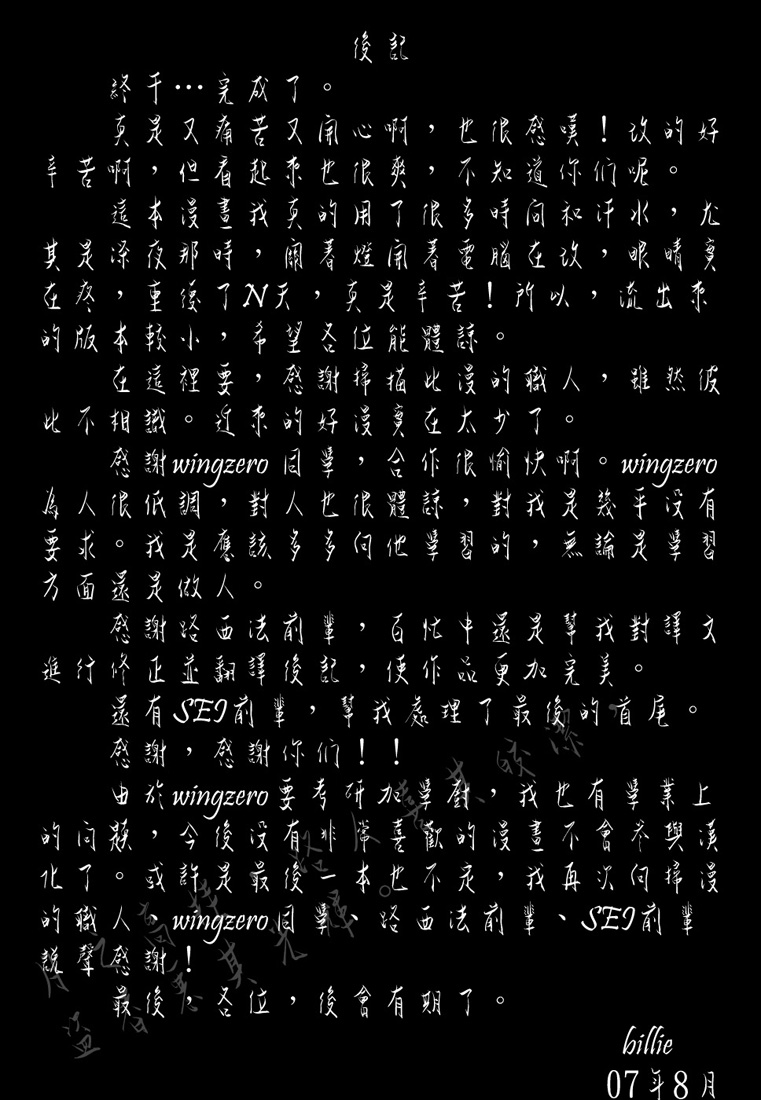 後記
終于…完成了。
真是又痛苦又開心啊，也很感嘆！改的好
辛苦啊，但看起來也很爽，不知道你们呢。
這本漫畫我真的用了很多時间和汗水，尤
其是深夜那時，關着燈開着電腦在改，眼睛實
在疼，重復了N天，真是辛苦！所以，流出來
的版本較小，希望各位能體諒。
在這裡要，感謝掃描此漫的職人，雖然彼
此不相識。近來的好漫實在太少了。
感謝wingzero同學，合作很愉快啊。wingzero
為人很低調，對人也很體諒，對我是幾乎没有
要求。我是應該多多向他學習的，無論是學習
方面還是做人。
感謝路西法前輩，百忙中還是幫我對譯文
進行修正並翻譯後記，使作品更加完美。
還有SEI前輩，幫我處理了最後的首尾。
感謝，感謝你们！！
由於wingzero要考研加學廚，我也有學業上
的问題，今後没有非常喜歡的漫畫不會参與漢
化了。或許是最後一本也不定，我再次向掃漫
的職人、wingzero同學、路西法前輩、SEI前輩
說聲感謝！
最後，各位，後會有期了。
billie
07年8月